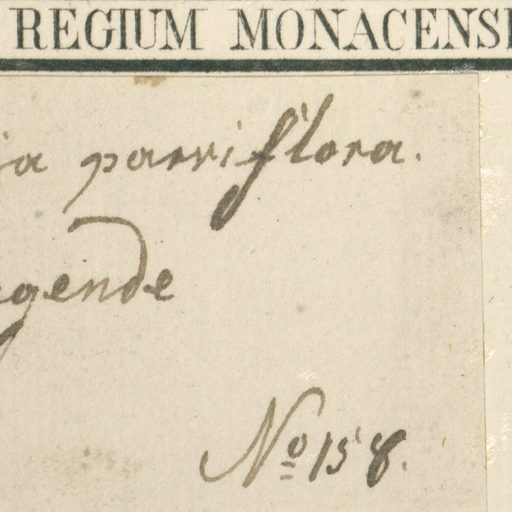 REGIUM MONACENS
ia parviflora.
gende
Nº 158.